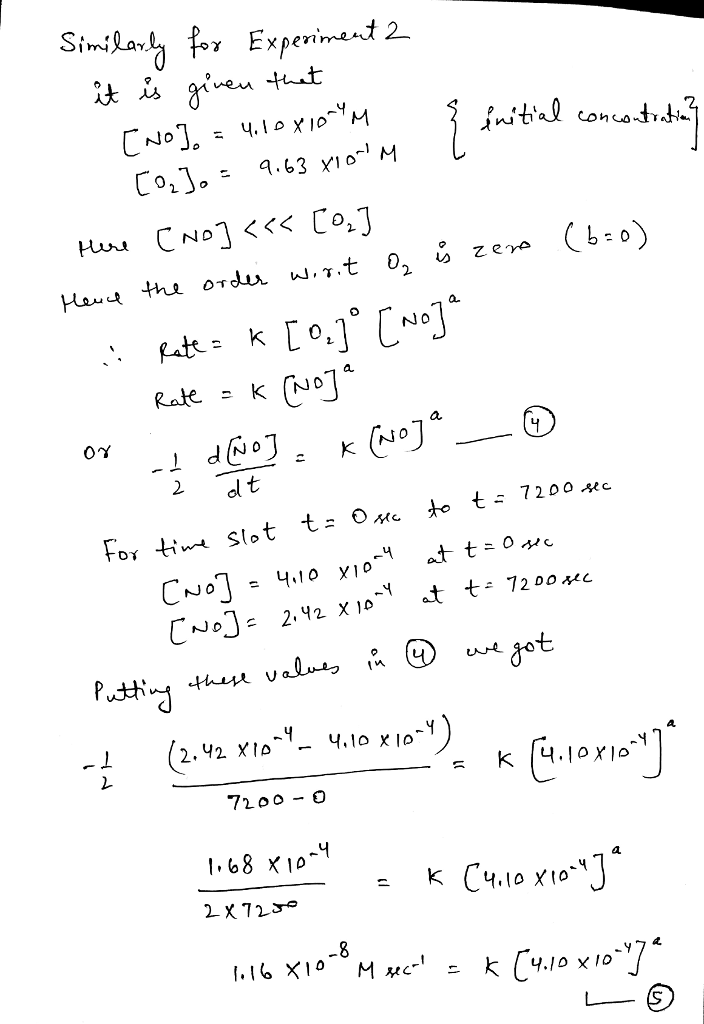 Similarly for Experiment 2
it is given that
[NO]₀ = 4.10 X 10⁻⁴ M
[O₂]₀ = 9.63 X10⁻¹ M
{ initial concentration}
Here [NO] <<< [O₂]
Hence the order w.r.t O₂ is zero (b=0)
∴ Rate = K [O₂]⁰ [NO]ᵃ
Rate = K [NO]ᵃ
or -1/2 d[NO]/dt = K [NO]ᵃ — ④
For time slot t = 0 sec to t = 7200 sec
[NO] = 4.10 X10⁻⁴ at t = 0 sec
[NO] = 2.42 X 10⁻⁴ at t = 7200 sec
Putting these values in ④ we got
-1/2 (2.42 X10⁻⁴ - 4.10 X10⁻⁴)/(7200 - 0) = K [4.10X10⁻⁴]ᵃ
1.68 X 10⁻⁴/(2 X 7200) = K [4.10 X10⁻⁴]ᵃ
1.16 X10⁻⁸ M sec⁻¹ = K [4.10 X 10⁻⁴]ᵃ
— ⑤